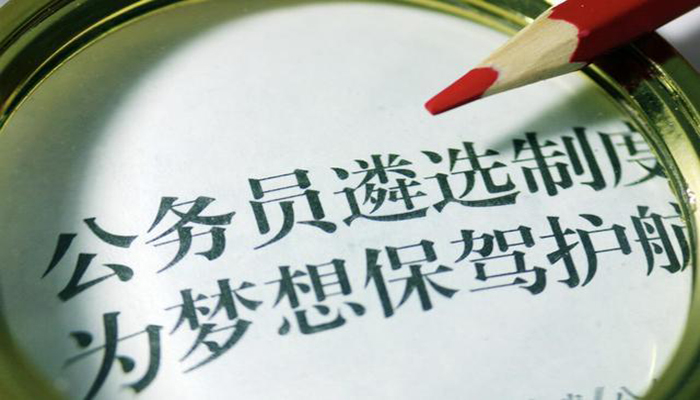 公务员遴选制度
为梦想保驾护航